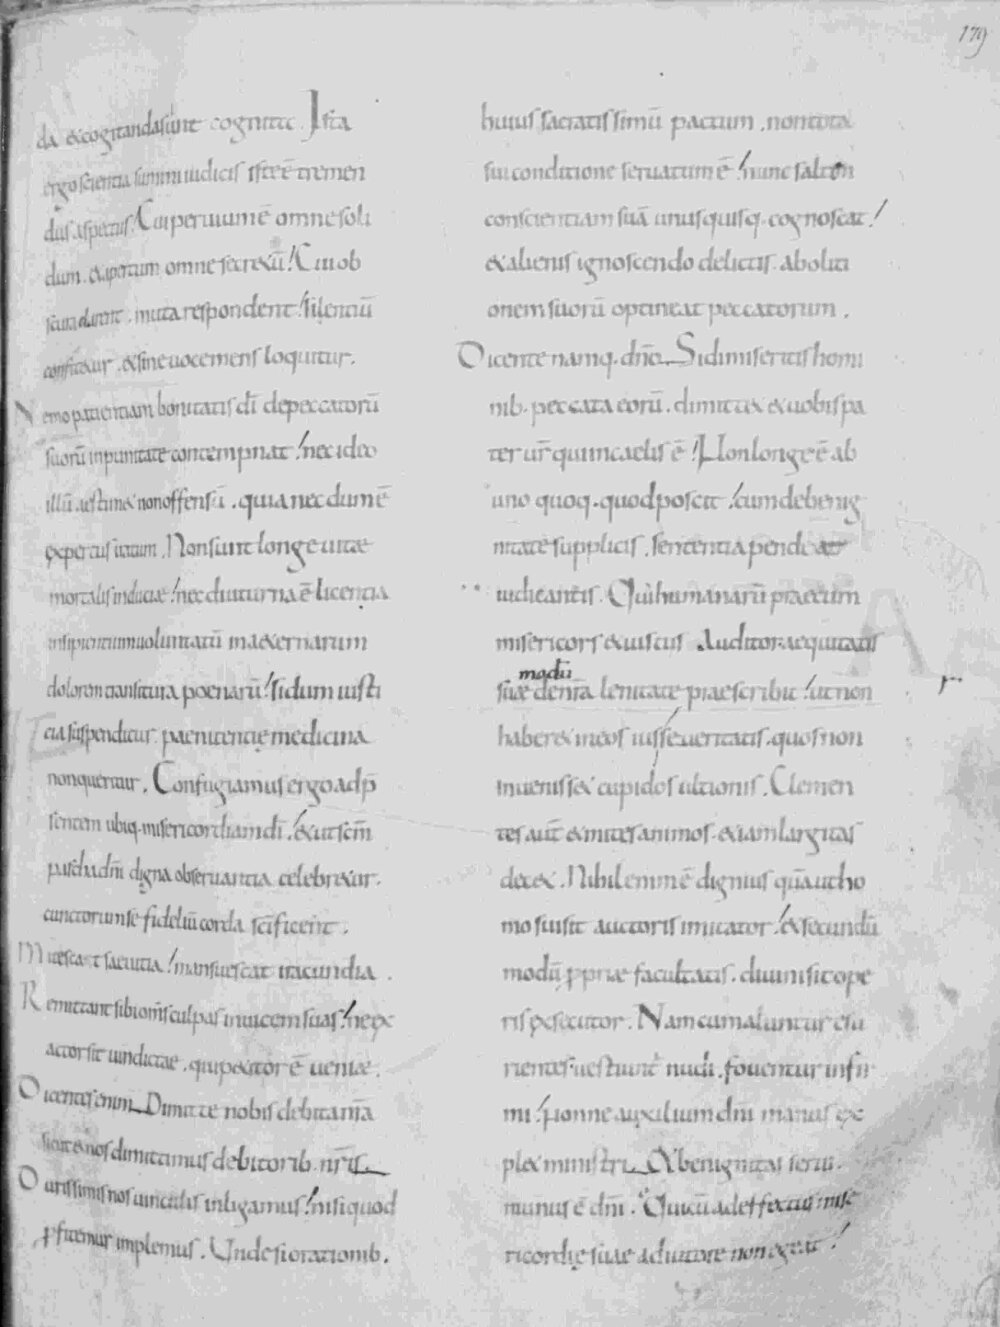 179
da & cogitanda sunt cognitic. Ista
ergo scientia summi iudicis. Istẽ ẽ tremen
dus aspectus! Cui peruium ẽ omne soli
dum. & apertum omne secr&ũ! Cui ob
scura clarent. muta respondent! silentiũ
confit&ur. & sine uoce mens loquitur.
Nemo patientiam bonitatis dī de peccatorũ
suorũ inpunitate contempnat! nec ideo
illũ. aestim& non offensũ. quia necdum ẽ
expertus iratum. Non sunt longe uitae
mortalis induciae! nec diuturna ẽ licentia
insipientium uoluntatũ in aeternarum
dolorem transitura poenarũ! si dum iusti
cia suspenditur. paenitentię medicina
non queritur. Confugiamus ergo ad p̄
sentem ubiq· misericordiam dī. & ut scm̄
pascha dn̄i digna obseruantia celebr&ur.
cunctorum se fideliũ corda sc̄ificent.
Mitescat saeuitia! mansuescat iracundia.
Remittant sibi om̄s culpas inuicem suas! ne ex
actor sit uindictae. qui p&itor ẽ ueniae.
Dicentes enim. Dimitte nobis debita nr̄a
sicut & nos dimittimus debitorib· nr̄is.
Durissimis nos uinculis inligamus! nisi quod
ꝓfitemur implemus. Unde si orationib·
huius sacratissimũ pactum. non tota
sui conditione seruatum ẽ! nunc saltem
conscientiam suã unusquisq· cognoscat!
& alienis ignoscendo delictis. aboliti
onem suorũ optineat peccatorum.
Dicente namq· dn̄o. Si dimiseritis homi
nib· peccata eorũ. dimitt& & uobis pa
ter ur̄ qui in caelis ẽ! Non longe ẽ ab
uno quoq· quod poscit! cum de benig
nitate supplicis. sententia pendeat
iudicantis. Qui humanarũ praecum
misericors & iustus Auditor. aequitatis
modũ
suae de nr̄a lenitate praescribit! ut non
haber& in eos ius seueritatis. quos non
inueniss& cupidos ultionis. Clemen
tes aut̃ & mites animos. & iam largitas
dec&. Nihil enim ẽ dignius quã ut ho
mo sui sit auctoris imitator! & secundũ
modũ ꝓpriae facultatis. diuini sit ope
ris exsecutor. Nam cum aluntur esu
rientes. uestiunt nudi. fouentur infir
mi! Nonne auxilium dn̄i manus ex
pl& ministri. & benignitas serui.
munus ẽ dn̄i. Qui cũ ad effectus mise
ricordię suae adiutore non egeat!